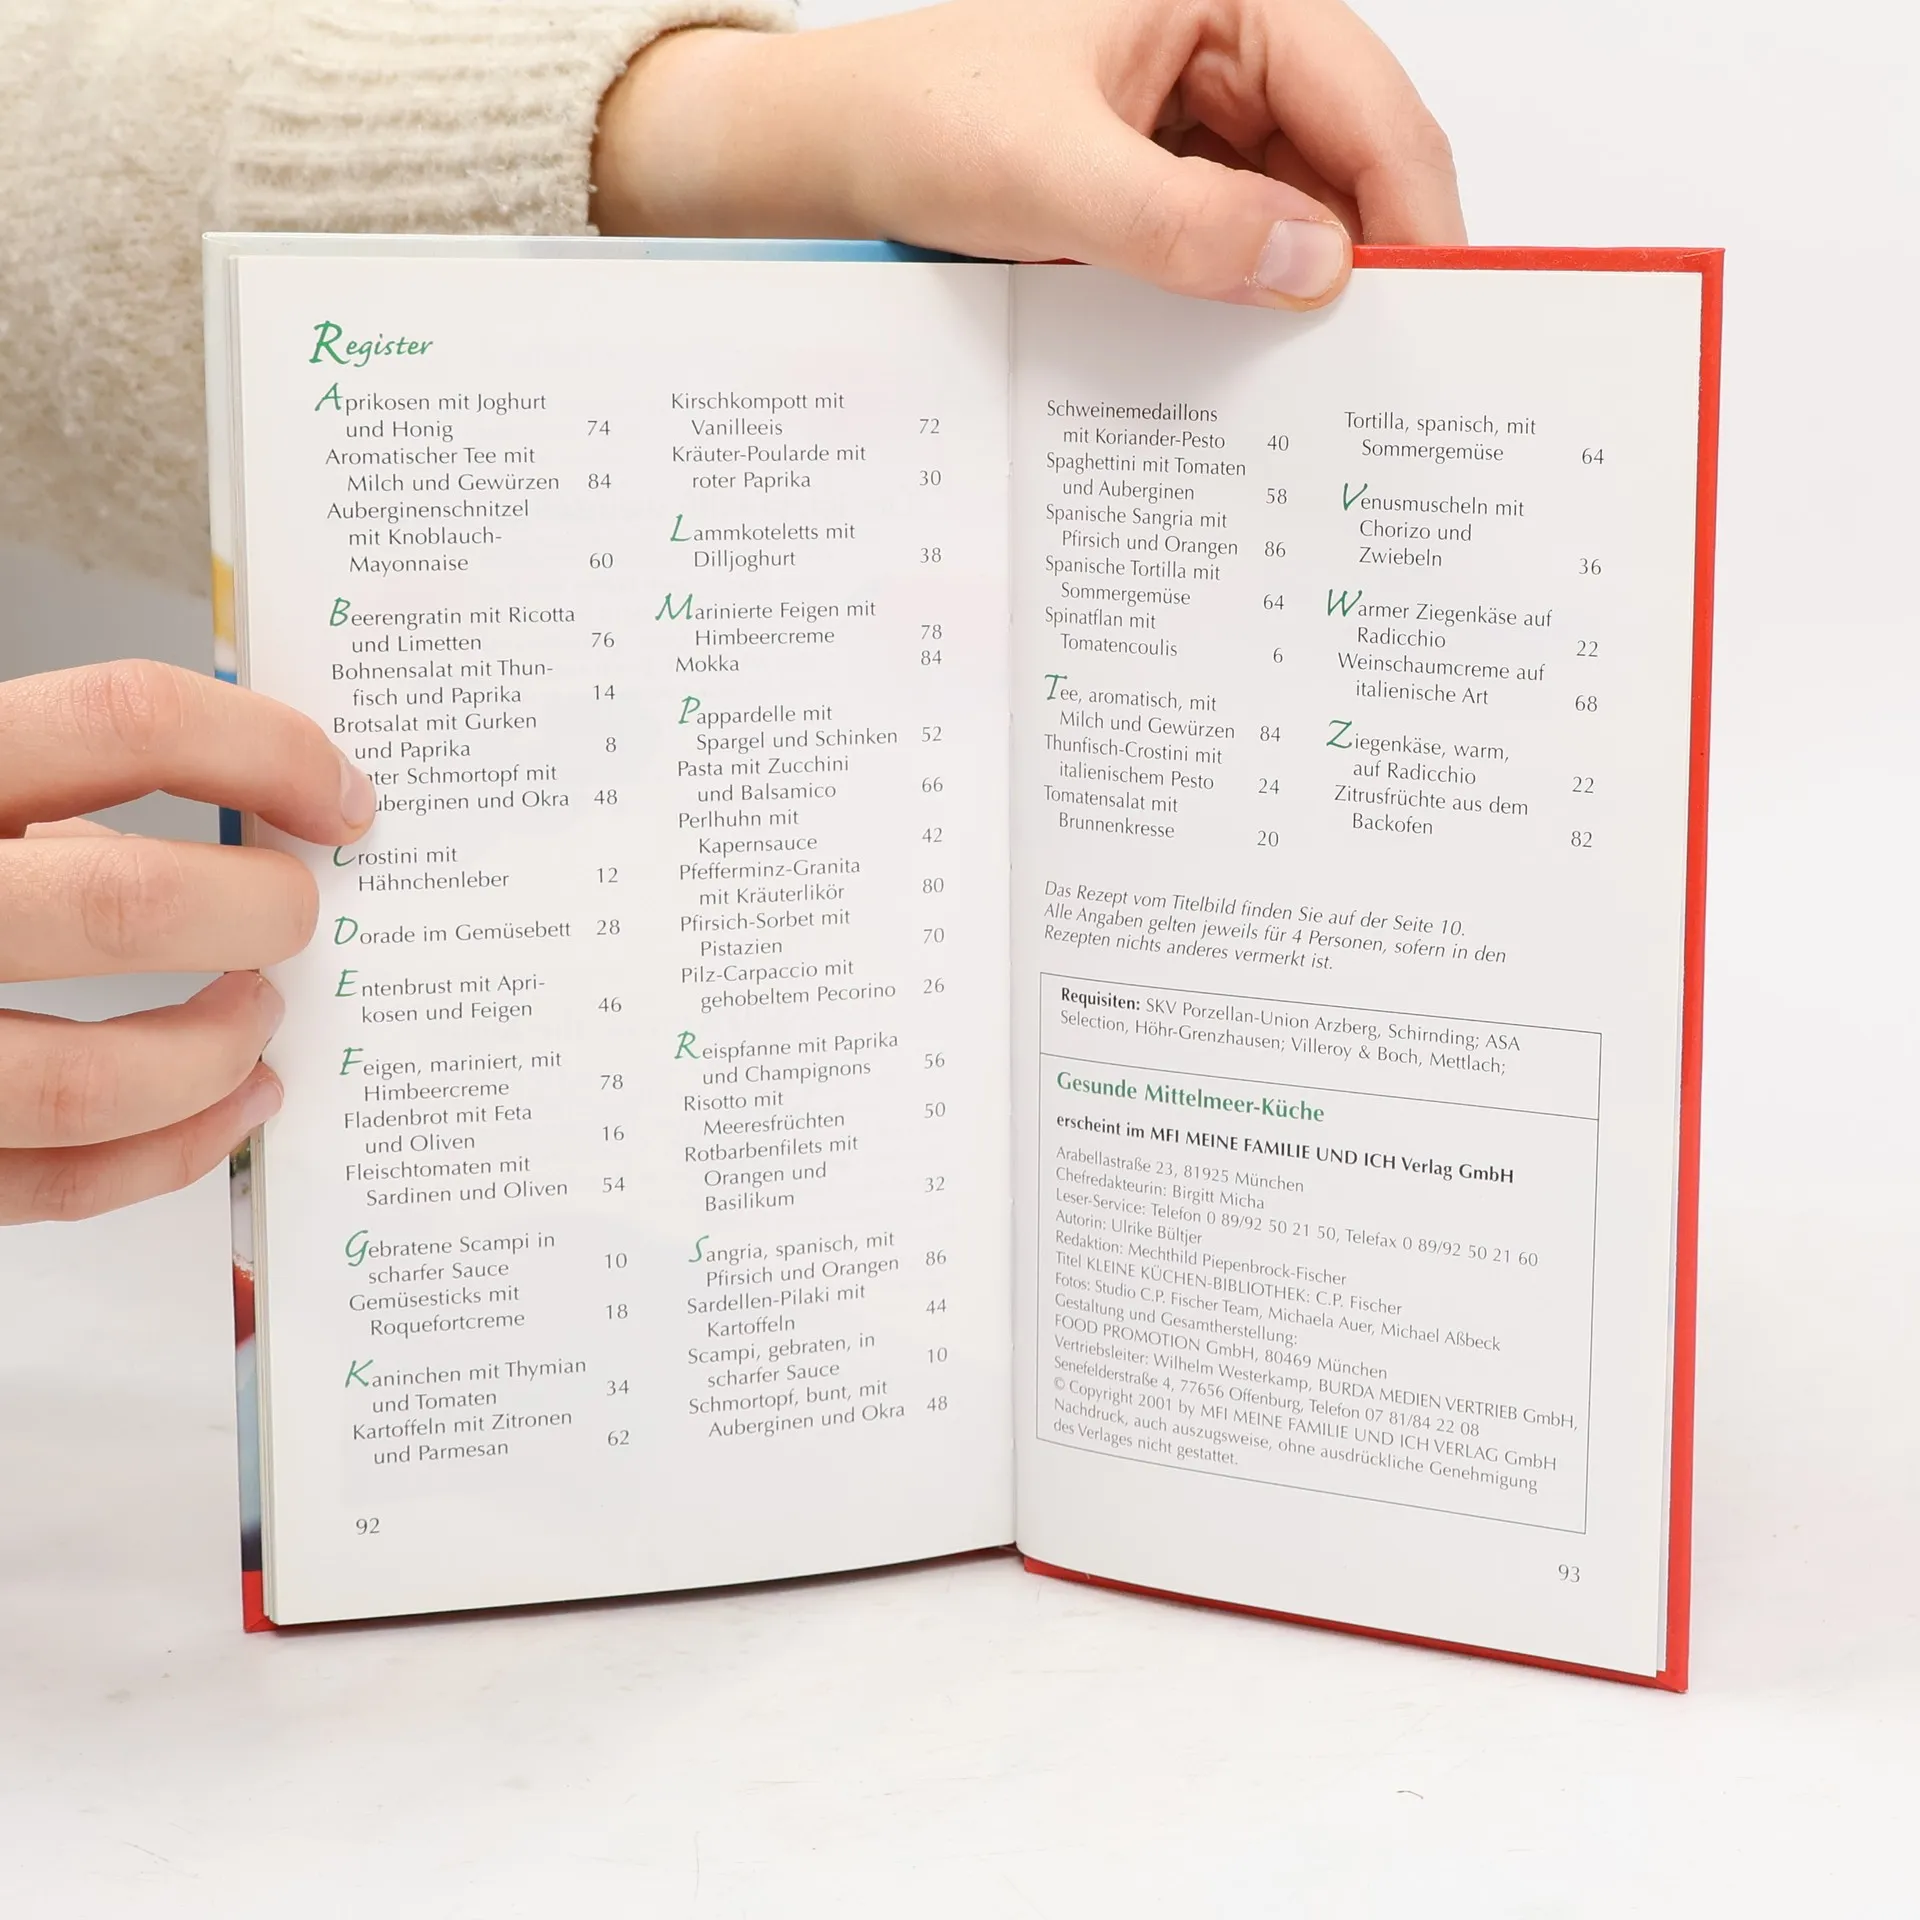 Register
Aprikosen mit Joghurt
und Honig 74
Aromatischer Tee mit
Milch und Gewürzen 84
Auberginenschnitzel
mit Knoblauch-
Mayonnaise 60
Beerengratin mit Ricotta
und Limetten 76
Bohnensalat mit Thun-
fisch und Paprika 14
Brotsalat mit Gurken
und Paprika 8
Schmortopf mit
und Okra 48
Crostini mit
Hähnchenleber 12
Dorade im Gemüsebett 28
Entenbrust mit Apri-
kosen und Feigen 46
Feigen, mariniert, mit
Himbeercreme 78
Fladenbrot mit Feta
und Oliven 16
Fleischtomaten mit
Sardinen und Oliven 54
Gebratene Scampi in
scharfer Sauce 10
Gemüsesticks mit
Roquefortcreme 18
Kaninchen mit Thymian
und Tomaten 34
Kartoffeln mit Zitronen
und Parmesan 62
Kirschkompott mit
Vanilleeis 72
Kräuter-Poularde mit
roter Paprika 30
Lammkoteletts mit
Dilljoghurt 38
Marinierte Feigen mit
Himbeercreme 78
Mokka 84
Pappardelle mit
Spargel und Schinken 52
Pasta mit Zucchini
und Balsamico 66
Perlhuhn mit
Kapernsauce 42
Pfefferminz-Granita
mit Kräuterlikör 80
Pfirsich-Sorbet mit
Pistazien 70
Pilz-Carpaccio mit
gehobeltem Pecorino 26
Reispfanne mit Paprika
und Champignons 56
Risotto mit
Meeresfrüchten 50
Rotbarbenfilets mit
Orangen und
Basilikum 32
Sangria, spanisch, mit
Pfirsich und Orangen 86
Sardellen-Pilaki mit
Kartoffeln 44
Scampi, gebraten, in
scharfer Sauce 10
Schmortopf, bunt, mit
Auberginen und Okra 48
92
Schweinemedaillons
mit Koriander-Pesto 40
Spaghettini mit Tomaten
und Auberginen 58
Spanische Sangria mit
Pfirsich und Orangen 86
Spanische Tortilla mit
Sommergemüse 64
Spinatflan mit
Tomatencoulis 6
Tee, aromatisch, mit
Milch und Gewürzen 84
Thunfisch-Crostini mit
italienischem Pesto 24
Tomatensalat mit
Brunnenkresse 20
Tortilla, spanisch, mit
Sommergemüse 64
Venusmuscheln mit
Chorizo und
Zwiebeln 36
Warmer Ziegenkäse auf
Radicchio 22
Weinschaumcreme auf
italienische Art 68
Ziegenkäse, warm,
auf Radicchio 22
Zitrusfrüchte aus dem
Backofen 82
Das Rezept vom Titelbild finden Sie auf der Seite 10.
Alle Angaben gelten jeweils für 4 Personen, sofern in den
Rezepten nichts anderes vermerkt ist.
Requisiten: SKV Porzellan-Union Arzberg, Schirnding; ASA
Selection, Höhr-Grenzhausen; Villeroy & Boch, Mettlach;
Gesunde Mittelmeer-Küche
erscheint im MFI MEINE FAMILIE UND ICH Verlag GmbH
Arabellastraße 23, 81925 München
Chefredakteurin: Birgitt Micha
Leser-Service: Telefon 0 89/92 50 21 50, Telefax 0 89/92 50 21 60
Autorin: Ulrike Bültjer
Redaktion: Mechthild Piepenbrock-Fischer
Titel KLEINE KÜCHEN-BIBLIOTHEK: C.P. Fischer
Fotos: Studio C.P. Fischer Team, Michaela Auer, Michael Aßbeck
Gestaltung und Gesamtherstellung:
FOOD PROMOTION GmbH, 80469 München
Vertriebsleiter: Wilhelm Westerkamp, BURDA MEDIEN VERTRIEB GmbH,
Senefelderstraße 4, 77656 Offenburg, Telefon 07 81/84 22 08
© Copyright 2001 by MFI MEINE FAMILIE UND ICH VERLAG GmbH
Nachdruck, auch auszugsweise, ohne ausdrückliche Genehmigung
des Verlages nicht gestattet.
93